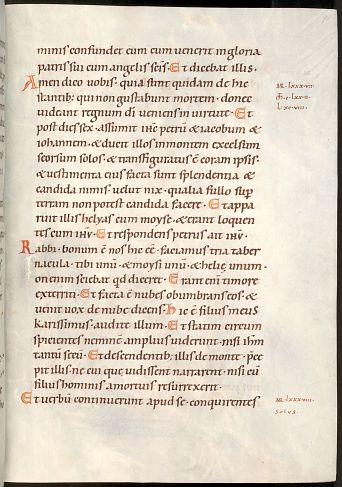 minis confundet eum cum uenerit in gloria
patris sui cum angelis scis. Et dicebat illis.
Amen dico uobis. quia sunt quidam de hic
stantib; qui non gustabunt mortem. donec
uideant regnum di ueniens in uirtute. Et
post dies sex. assumit ihc petru & iacobum &
iohannem. & duxit illos in montem excelsum
seorsum solos. & transfiguratus e coram ipsis.
& uestimenta eius facta sunt splendentia &
candida nimis. uelut nix. qualia fullo sup
terram non potest candida facere. Et appa
ruit illis helyas cum moyse. & erant loquen
tes cum ihu. Et respondens petrus ait ihu.
Rabbi. bonum e nos hic ee. faciamus tria taber
nacula. tibi unu. & moysi unu. & helie unum.
non enim sciebat qd diceret. Erant eni timore
exterriti. Et facta e nubes obumbrans eos. &
uenit uox de nube dicens. hic e filius meus
karissimus. audite illum. Et statim circum
spicientes nemine amplius uiderunt. nisi ihm
tantu secu. Et descendentib; illis de monte. pce
pit illis. ne cui que uidissent narrarent. nisi cu
filius hominis a mortuis resurrexerit.
Et uerbu continuerunt apud se. conquirentes